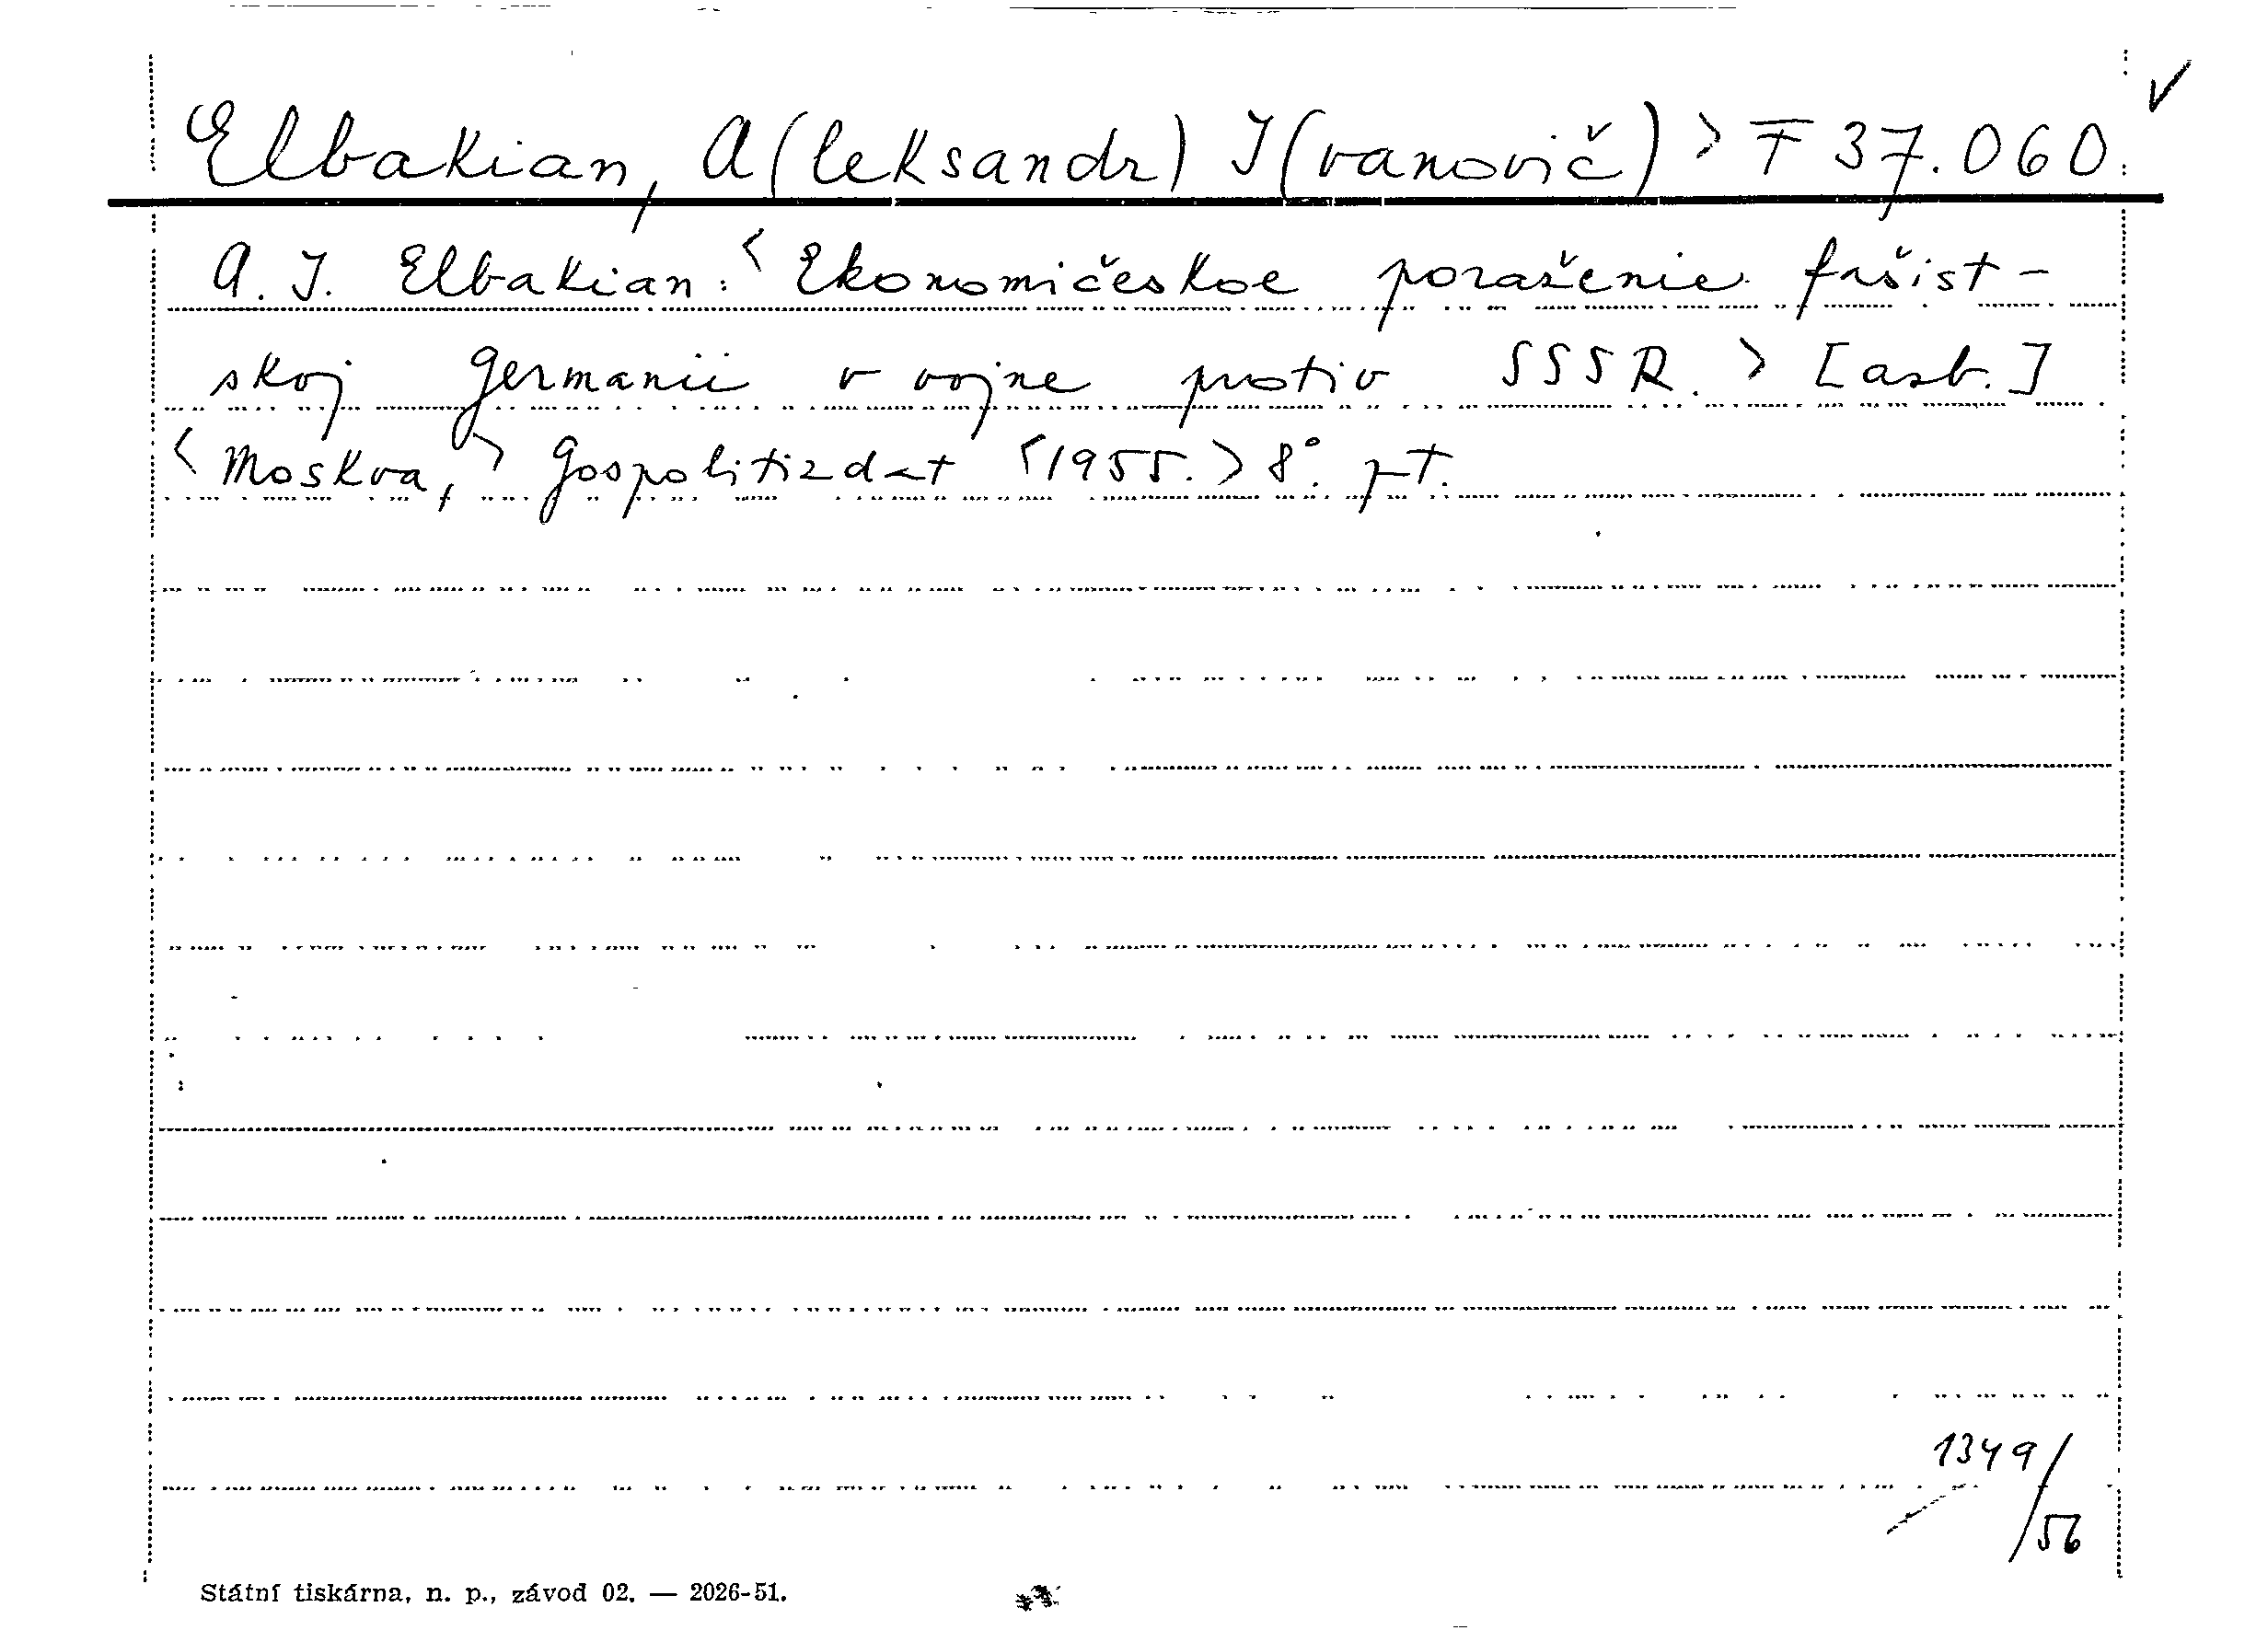 Elbakian, A(leksandr) I(vanovič) > F 37.060. ✓
A. I. Elbakian: < Ekonomičeskoe poraženie fašist-
skoj Germanii v vojne protiv SSSR. > [azb.]
< Moskva, > Gospolitizdat < 1955. > 8°. pt.
1349/
56
Státní tiskárna, n. p., závod 02. — 2026-51.